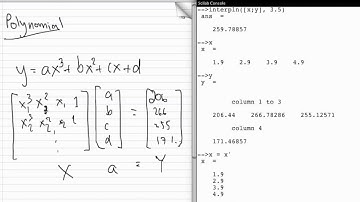 Polynomial
y = ax³ + bx² + cx + d
x₁³ x₁² x₁ 1 a 206
x₂³ x₂² x₂ 1 b = 266
: c 255
d 171.
X a = Y
Scilab Console
-->interpln([x;y], 3.5)
ans =
259.78857
-->x
x =
1.9 2.9 3.9 4.9
-->y
y =
column 1 to 3
206.44 266.78286 255.12571
column 4
171.46857
-->x = x'
x =
1.9
2.9
3.9
4.9